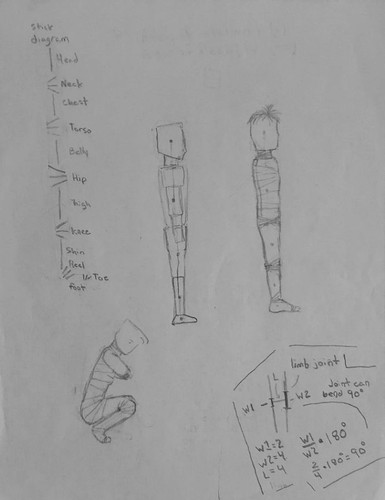 Stick
diagram
Head
Neck
Chest
Torso
Belly
Hip
Thigh
Knee
Shin
Heel
Toe
foot
limb joint
Joint can
bend 90°
L
W1
W2
W1=2
W2=4
L=4
W1/W2 • 180°
2/4 • 180° = 90°